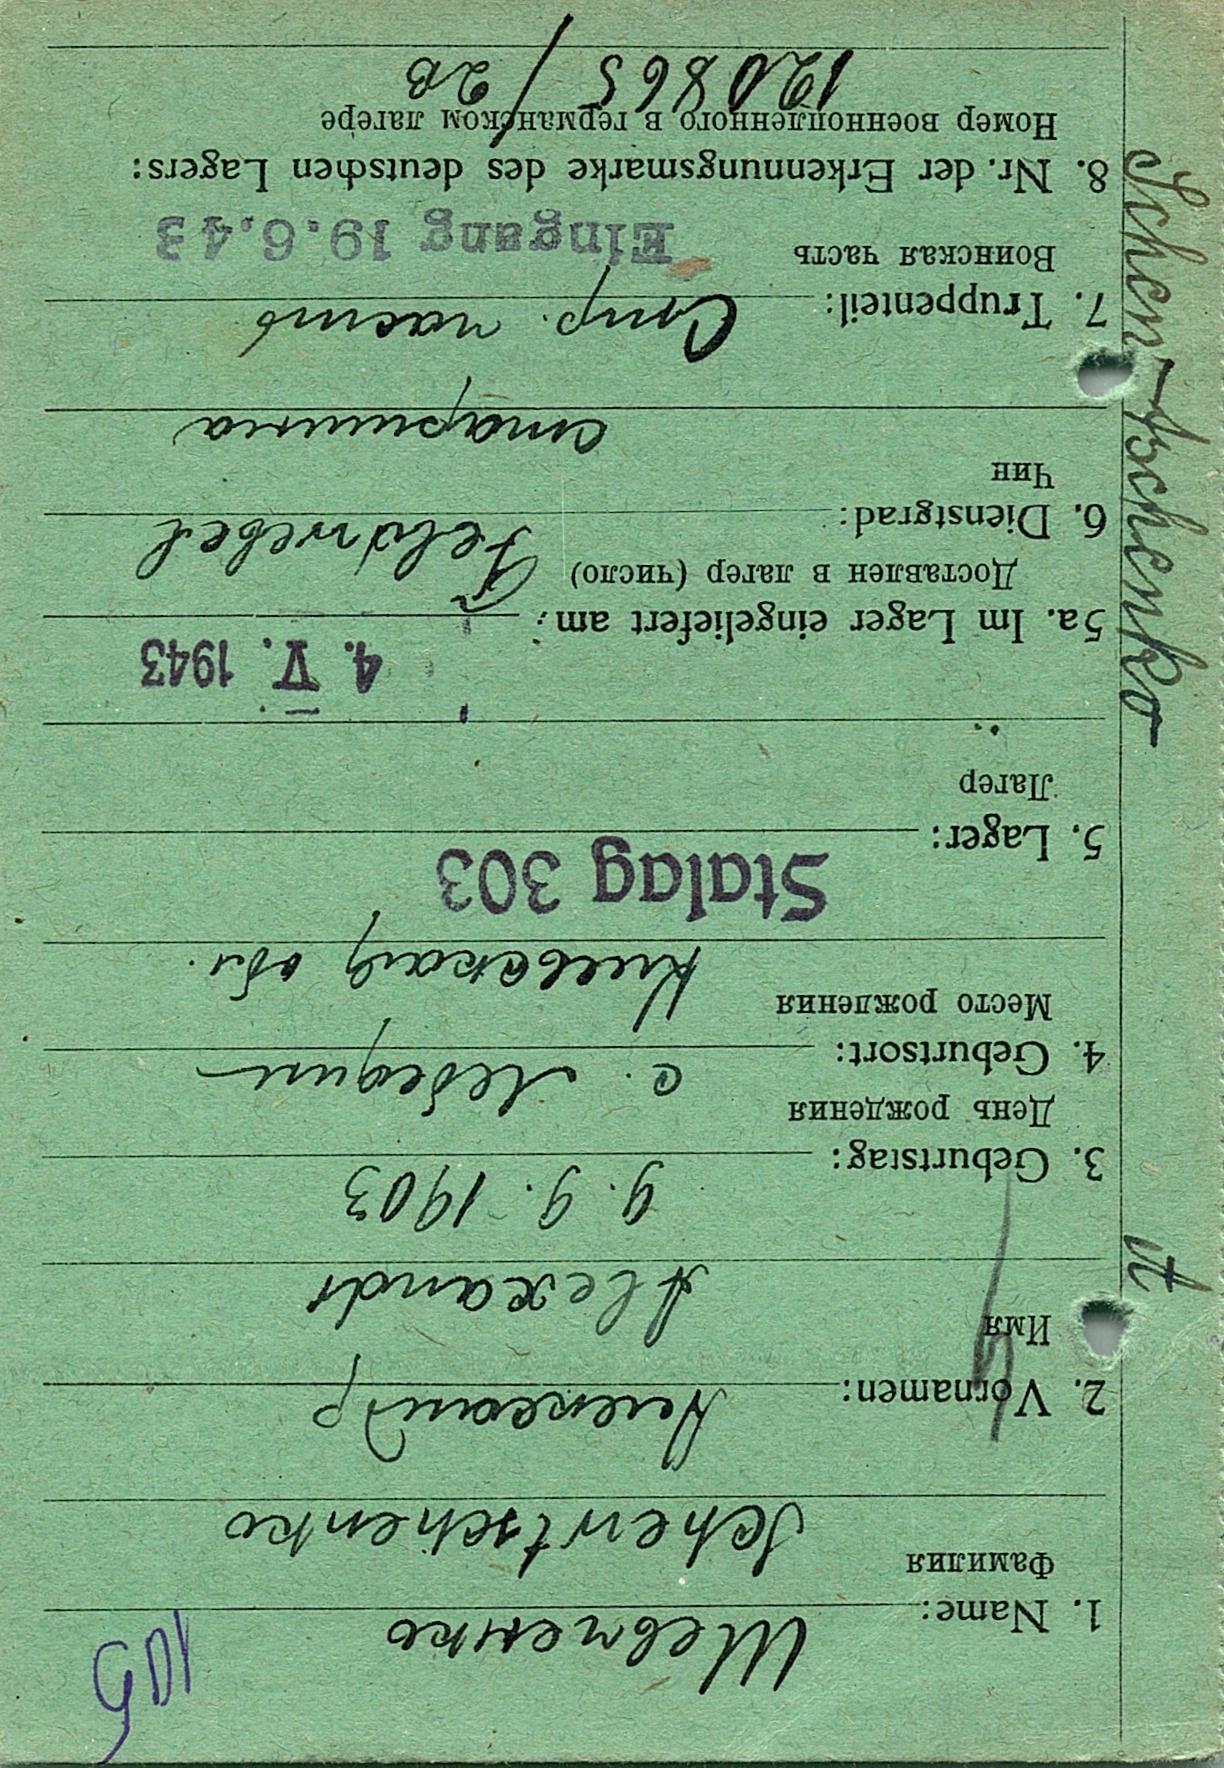 105
1. Name: Шевченко
Фамилия
Schewtschenko
2. Vornamen: Александр
Имя
Alexandr
3. Geburtstag: 9. 9. 1903
День рождения
4. Geburtsort: с. Лебедин
Место рождения
Киевская обл.
5. Lager: Stalag 303
Лагер
4. V. 1943
5a. Im Lager eingeliefert am:
Доставлен в лагер (число)
6. Dienstgrad: Feldwebel
Чин
старшина
7. Truppenteil: Стр. часть
Воинская часть
Eingang 19.6.43
8. Nr. der Erkennungsmarke des deutschen Lagers:
Номер военнопленного в германском лагере
120865 / 2B
Schewtschenko
A